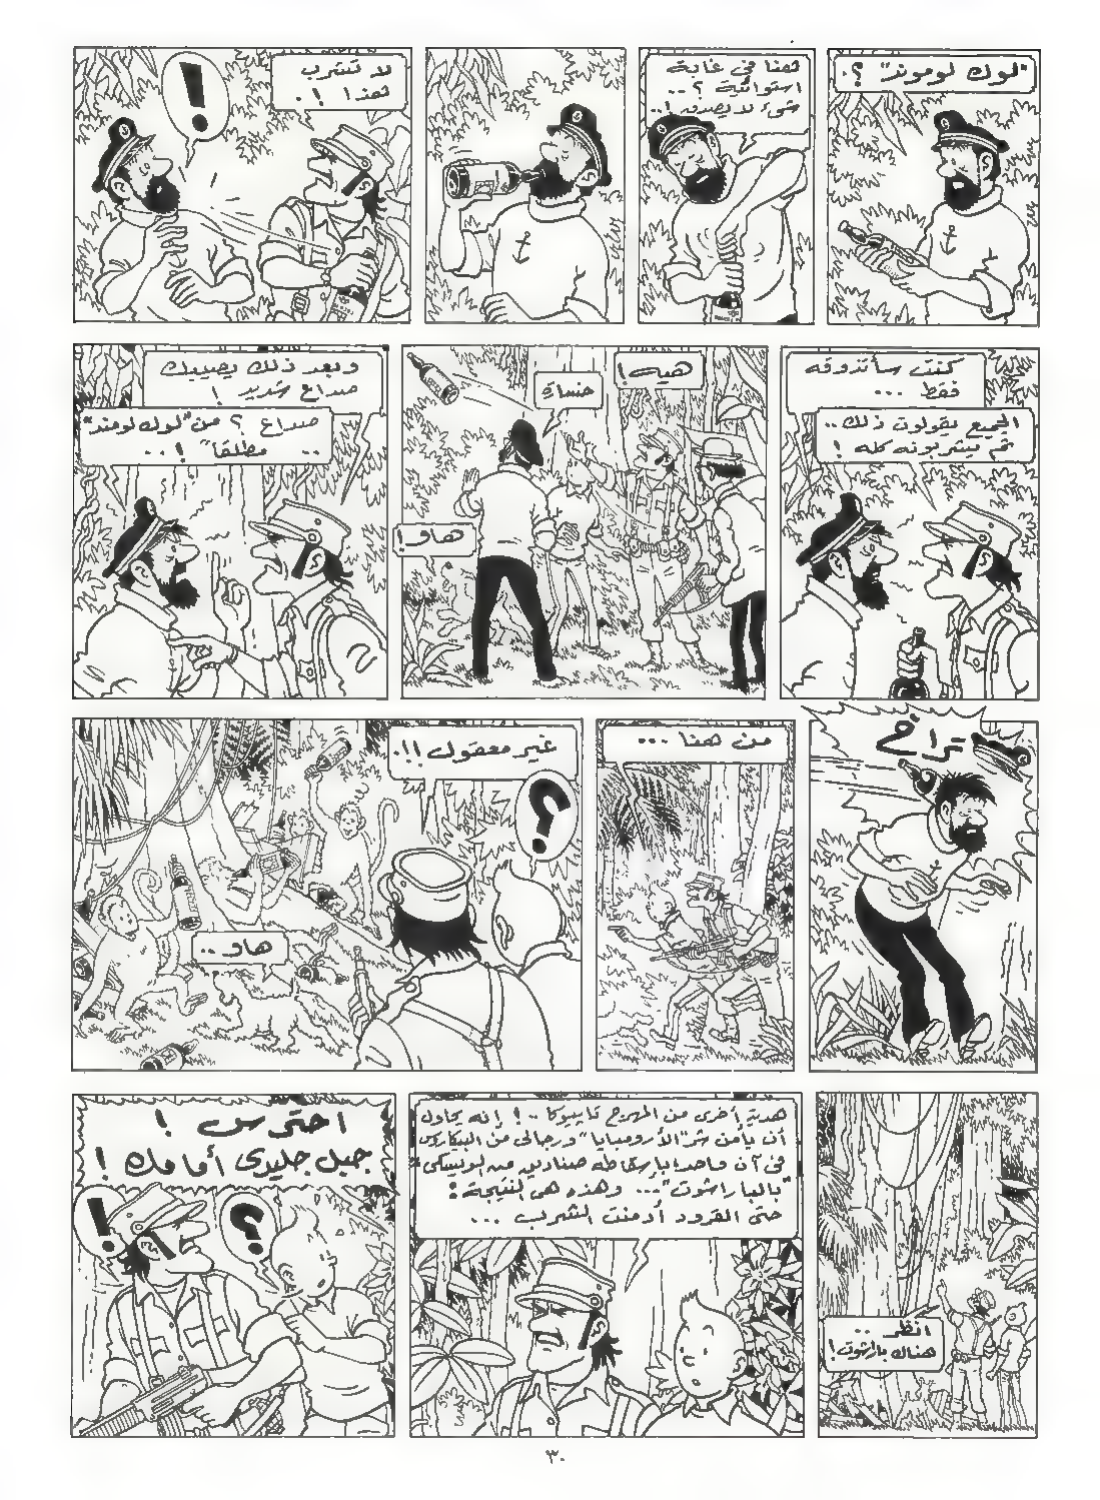 "لوك لوموند" ؟.
هنا في غابة
استوائية ؟ ..
شيء لا يصدق ! ..
!
لا تشرب
هذا ! .
كنت سأتذوقه
فقط ...
الجميع يقولون ذلك ..
ثم يشربونه كله !
هيه !
خسارة
هاو !
وبعد ذلك يصيبك
صداع شديد !
صداع ؟ من "لوك لوموند"
.. مطلقاً" ! ..
تراخ
من هنا ...
غير معقول !! .
؟
هاو ..
انظر ..
هناك باراشوت !
هدية أخرى من المهرج تابيوكا .. ! إنه يحاول
أن يأمن شر "الأرومبايا" ورجالي من البيكاروس
في آن واحد بإسقاطه صناديق من الويسكي
"بالباراشوت" ... وهذه هي النتيجة :
حتى القرود أدمنت الشرب ...
احترس !
جبل جليدي أمامك !
؟
!
٣٠